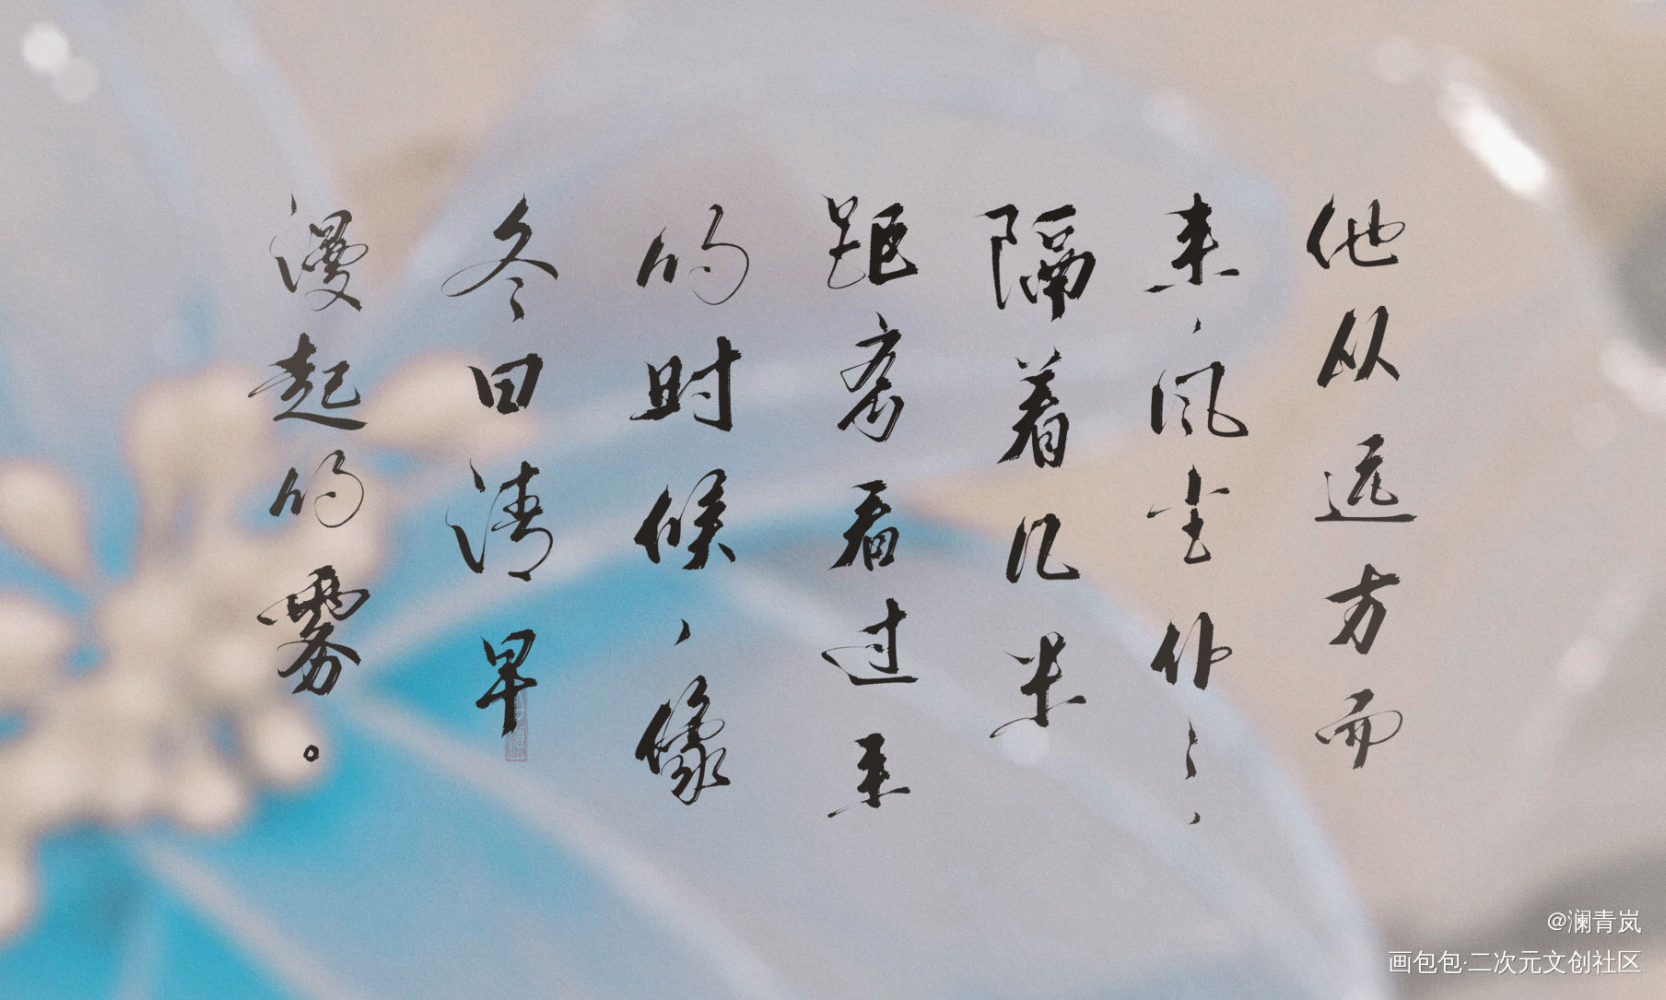 他从远方而
来，风尘仆仆，
隔着几米
距离看过来
的时候，像
冬日清早
漫起的雾。
@澜青岚
画包包·二次元文创社区